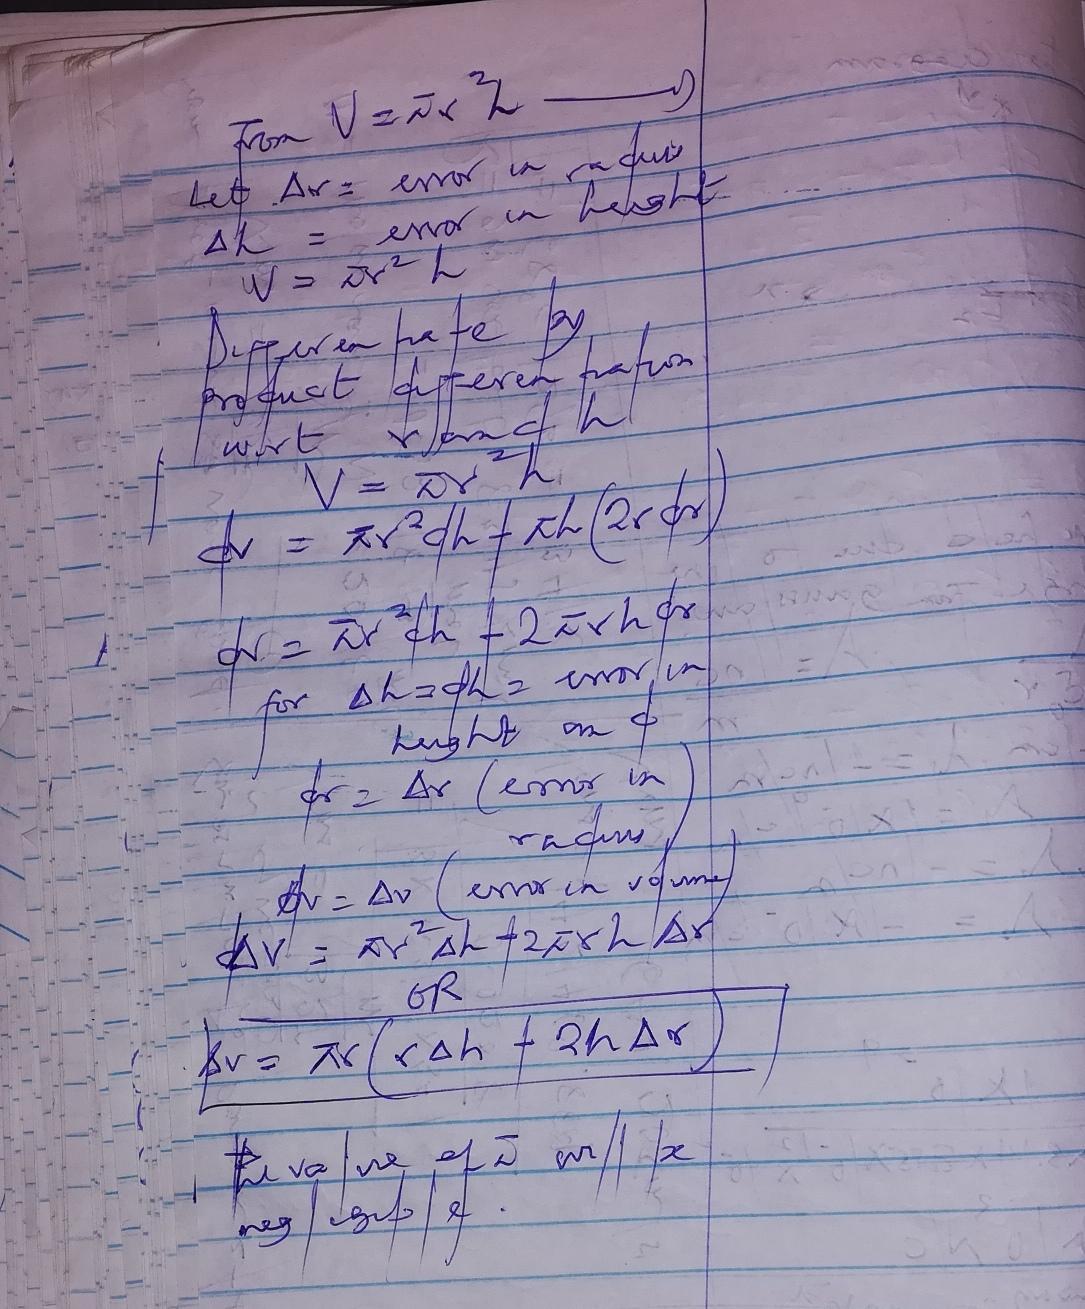 From V = πr²h ⟶ )
Let Δr = error in radius
Δh = error in height
V = πr²h
Differentiate by
product differentiation
wrt r and h
V = πr²h
dv = πr²dh + πh(2rdr)
dv = πr²dh + 2πrhdr
for Δh = dh = error in
height and
dr = Δr (error in
radius)
dv = Δv (error in volume)
ΔV = πr²Δh + 2πrhΔr
OR
Δv = πr(rΔh + 2hΔr)
The value of π will be
negligible.